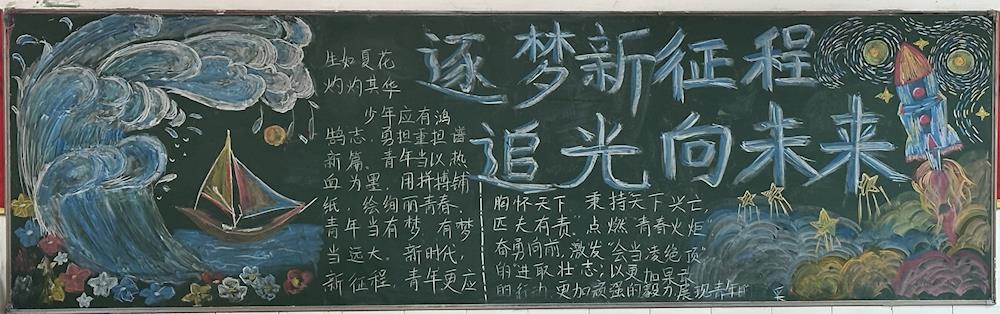 逐梦新征程
追光向未来
生如夏花
灼灼其华
少年应有鸿
鹄志,勇担重担谱
新篇。青年当以热
血为墨,用拼搏铺
纸,绘绚丽青春。
青年当有梦,有梦
当远大。新时代,
新征程,青年更应
胸怀天下 秉持天下兴亡
匹夫有责”。点燃“青春火炬
奋勇向前,激发“会当凌绝顶”
的“进取壮志;以更加昂
的行动,更加顽强的毅力,展现青年的 采